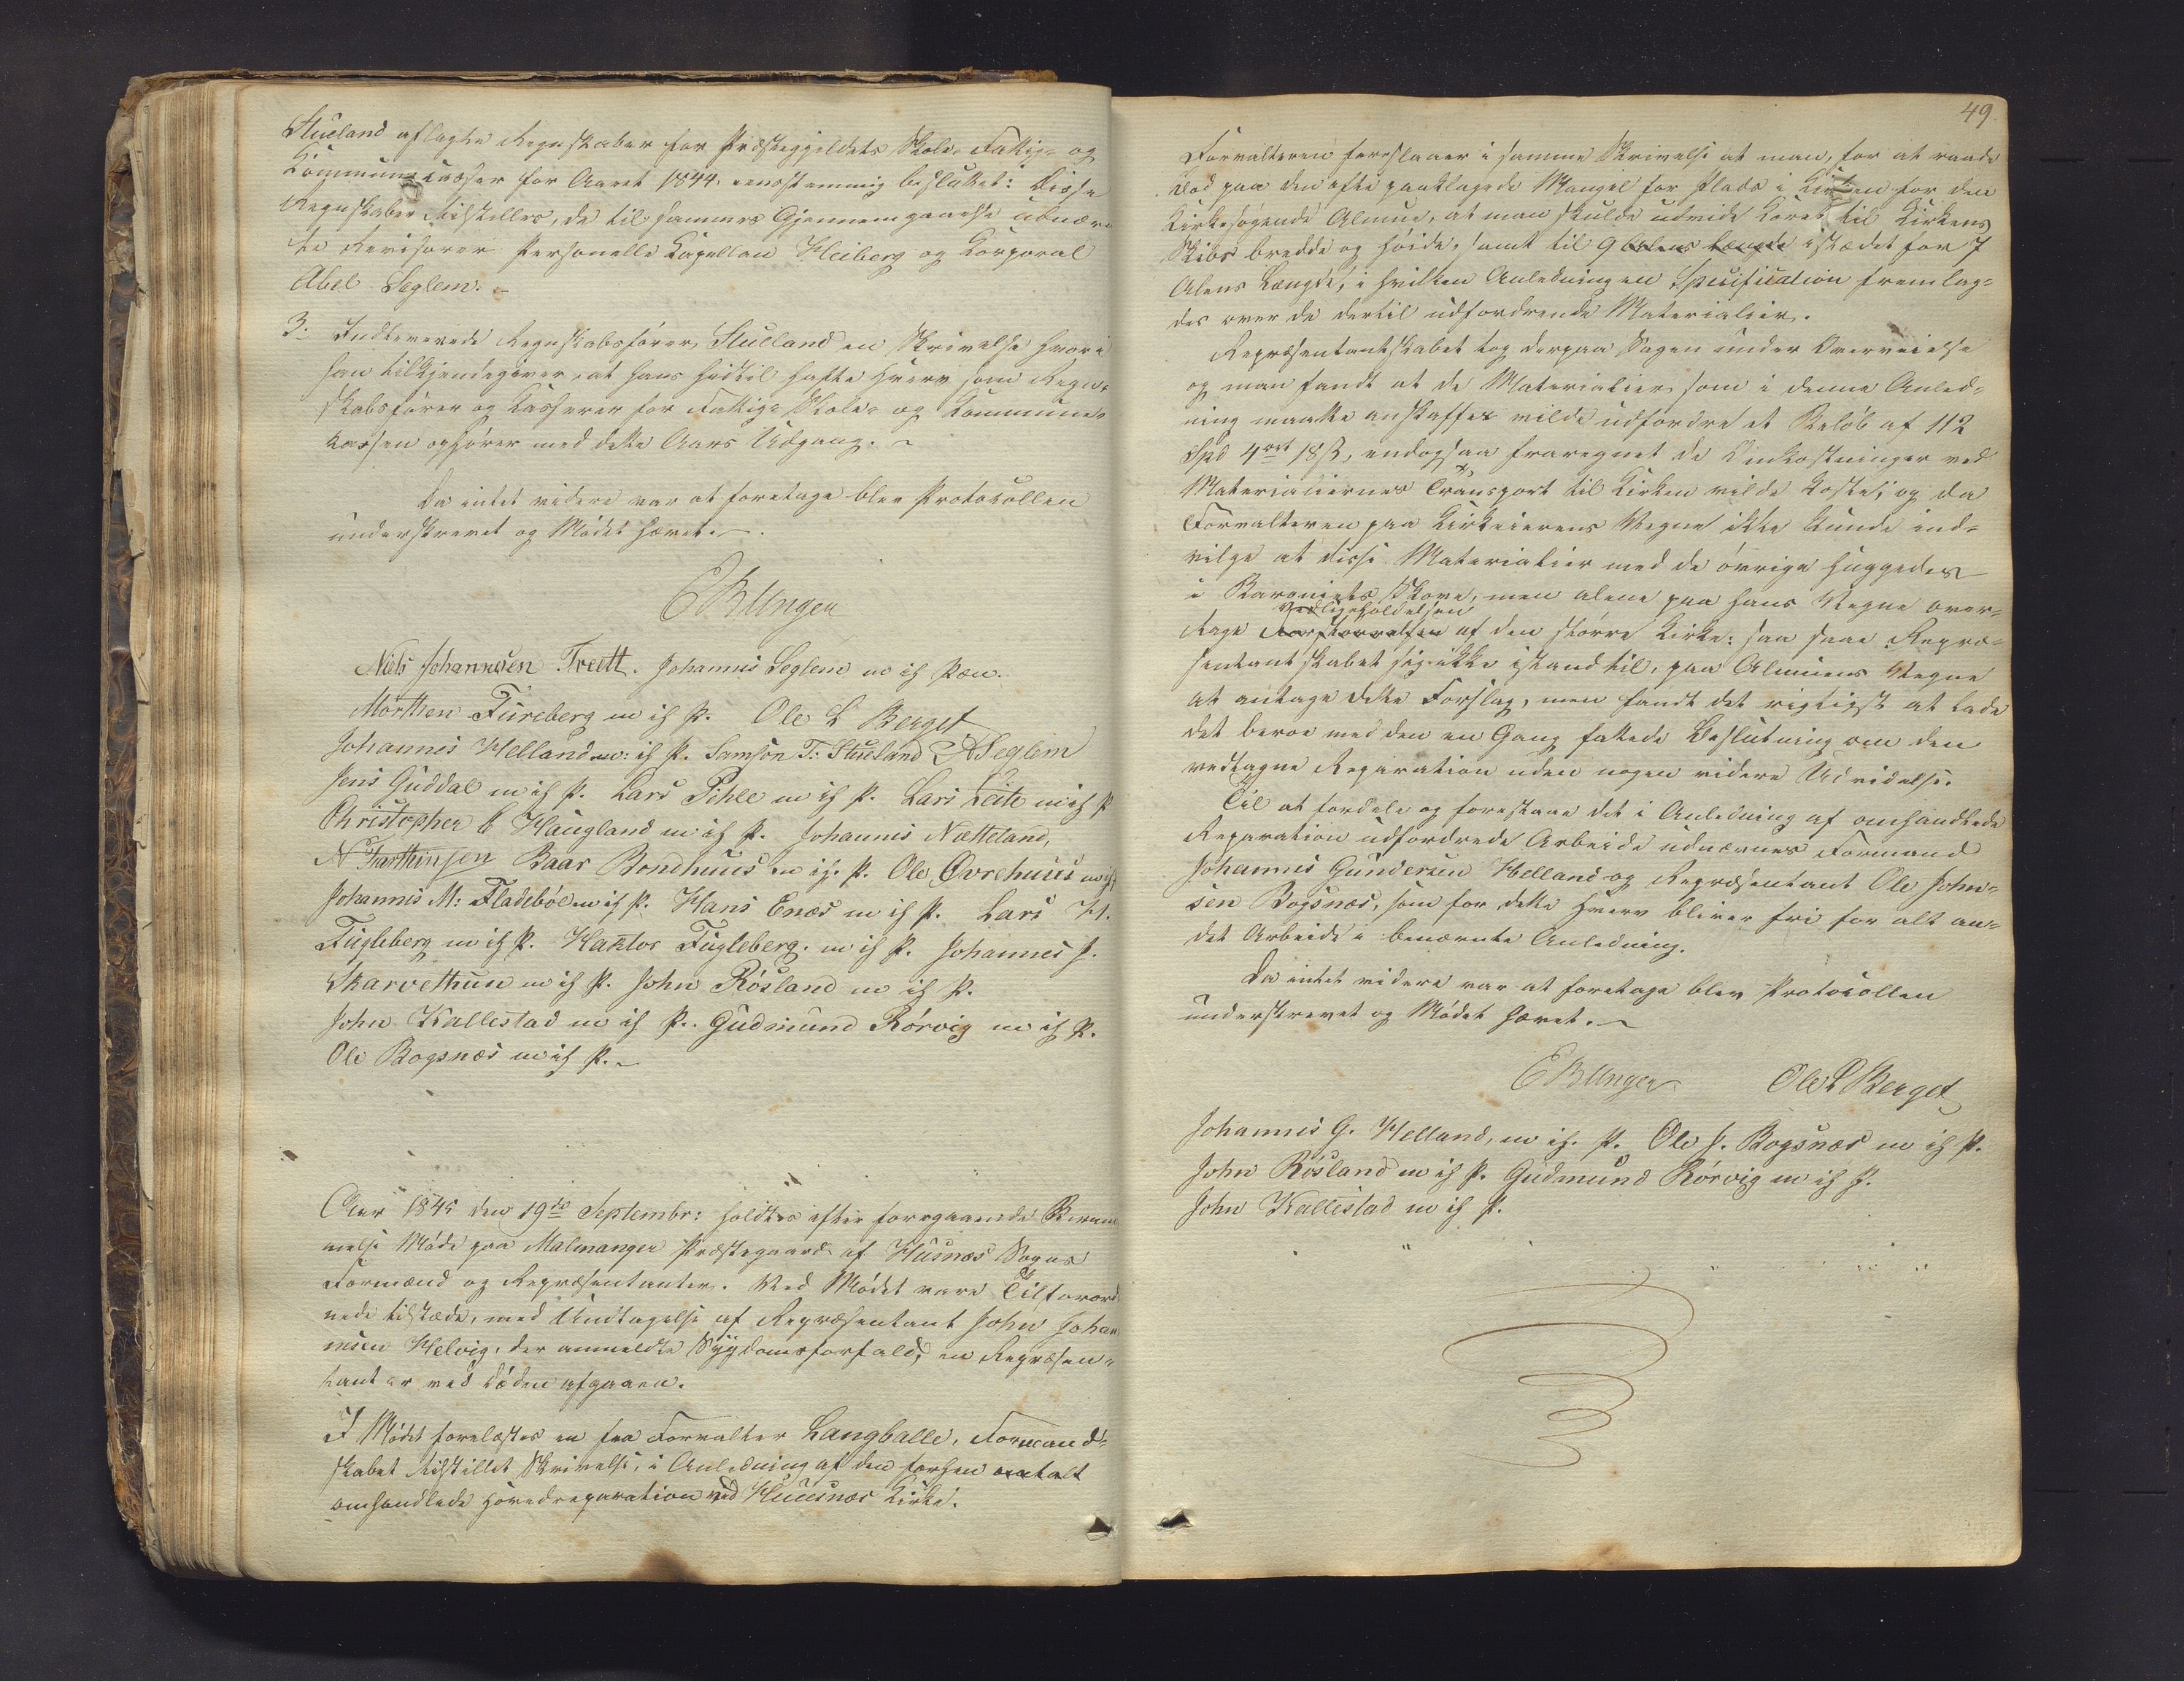 Stueland aflagte Regnskaber for Præstegjeldets Skole- Fattig- og
Kommunekasser for Aaret 1844, eenstemmig besluttet: Disse
Regnskaber tilstilles, de til sammes Gjennemgaaelse udnævn
te Revisorer Personelle Kapellan Heiberg og Korporal
Abel Seglem. –
3. Indleverede Regnskabsfører Stueland en Skrivelse hvori
han tilkjendegiver, at hans hidtil hafte Hverv som Regn-
skabsfører og Kasserer for Fattig- Skole- og Kommune-
kassen ophører med dette Aars Udgang. –
Da intet videre var at foretage blev Protokollen
underskrevet og Mødet hævet. –
E B Unger
Niels Johannesen Treett. Johannis Seglem m i h Pen.
Morthen Fureberg m i h P. Ole L Berget
Johannis Helland m: i h P. Samson T: Stueland A Seglem
Jens Guddal m i h P. Lars Pihle m i h P. Lars Leite m i h P
Christopher C Haugland m i h P. Johannis Nætteland,
N Torthinsen Baar Bondhuus m i h. P. Ole Øvrehuus m i h
Johannis M: Fladebøe m i h P. Hans Enæs m i h P. Lars H.
Fugleberg m i h P. Haktor Fugleberg. m i h P. Johannes J.
Skarvethun m i h P. John Røsland m i h P.
John Kallestad m i h P. Gudmund Rørvig m i h P.
Ole Bogsnæs m i h P. –
Aar 1845 den 19de Septembr: holdtes efter foregaaende Beram
melse Møde paa Malmanger Præstegaard af Husnæs Sogns
Formænd og Repræsentanter. Ved Mødet vare Tilforord
nede tilstæde, med Undtagelse af Repræsentant John Johan
nisen Helvig, der anmeldte Sygdomsforfald; en Repræsen-
tant er ved Døden afgaaen.
I Mødet forelæstes en fra Forvalter Langballe, Formand-
skabet tilstillet Skrivelse, i Anledning af den forhen omtalt
omhandlede Hovedreparation ved Huusnæs Kirke.
49.
Forvalteren foreslaaer i samme Skrivelse at man, for at raade
Bod paa den ofte paaklagede Mangel for Plads i Kirken for den
Kirkesøgende Almue, at man skulde udvide Koret til Kirkens
Skibs bredde og høide, samt til 9 Alens længde istædet for 7
Alens Længde, i hvilken Anledning en Specification fremlag-
des over de dertil udfordrende Materialier.
Repræsentantskabet tog derpaa Sagen under Overveielse
og man fandt at de Materialier som i denne Anled-
ning maatte anskaffes vilde udfordre et Beløb af 112
Spd 4ort 18 ß, endogsaa fraregnet de Omkostninger ved
Materialiernes Transport til Kirken vilde koste; og da
Forvalteren paa Kirkeeierens Vegne ikke kunde ind-
vilge at disse Materialier med de øvrige huggedes
i Baroniets Skove, men alene paa hans Vegne over-
Vedligeholdelsen
tage Forstørrelsen af den større Kirke: saa saae Repræ-
sentantskabet sig ikke istand til, paa Almuens Vegne
at antage dette Forslag, men fandt det rigtigst at lade
det beroe med den en Gang fattede Beslutning om den
vedtagne Reparation uden nogen videre Udvidelse.
Til at fordele og forestaae det i Anledning af omhandlede
Reparation udfordrede Arbeide udnævnes Formand
Johannis Gundersen Helland og Repræsentant Ole John-
sen Bogsnæs, som for dette Hverv bliver fri for alt an-
det Arbeide i benævnte Anledning.
Da intet videre var at foretage blev Protokollen
underskrevet og Mødet hævet. –
E B Unger Ole L Berget
Johannis G. Helland, m i h. P. Ole J. Bogsnæs m i h P.
John Røsland m i h P. Gudmund Rørvig m i h P.
John Kallestad m i h P.